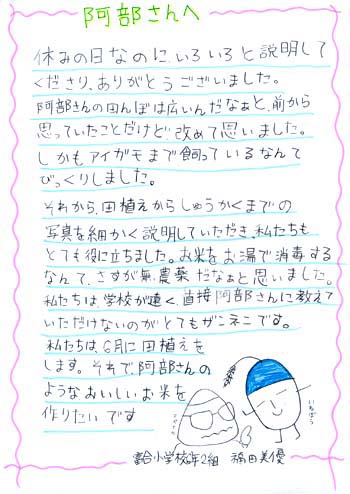 阿部さんへ
休みの日なのに、いろいろと説明して
くださり、ありがとうございました。
阿部さんの田んぼは広いんだなぁと、前から
思っていたことだけど、改めて思いました。
しかもアイガモまで飼っているなんて
びっくりしました。
それから、田植えからしゅうかくまでの
写真を細かく説明していただき、私たちも
とても役に立ちました。お米をお湯で消毒する
なんて、さすが無農薬だなぁと思いました。
私たちは、学校が遠く、直接阿部さんに教えて
いただけないのがとてもザンネンです。
私たちは、6月に田植えを
します。それで、阿部さんの
ようなおいしいお米を
作りたいです
小学校5年2組 福田美優